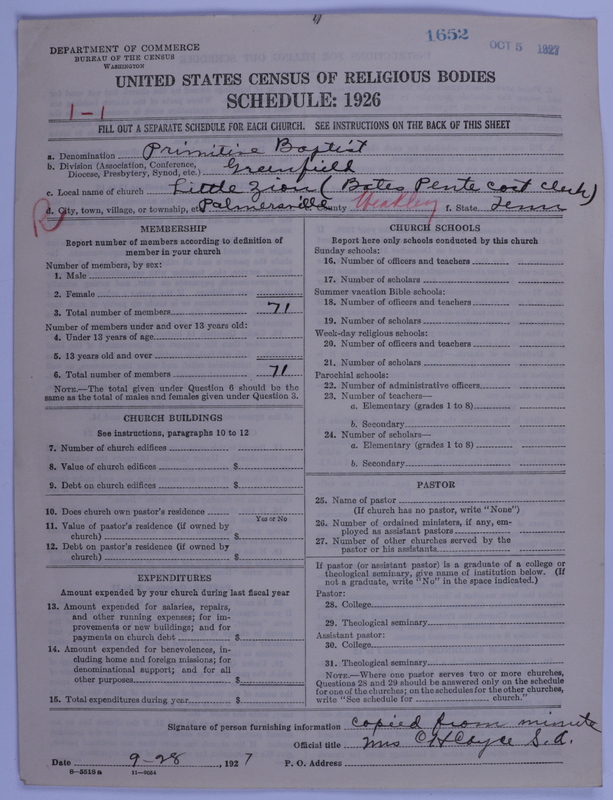 1652
OCT 5 1927
DEPARTMENT OF COMMERCE
BUREAU OF THE CENSUS
WASHINGTON
UNITED STATES CENSUS OF RELIGIOUS BODIES
SCHEDULE: 1926
1-1
FILL OUT A SEPARATE SCHEDULE FOR EACH CHURCH. SEE INSTRUCTIONS ON THE BACK OF THIS SHEET
a. Denomination Primitive Baptist
b. Division (Association, Conference, Diocese, Presbytery, Synod, etc.) Greenfield
c. Local name of church Little Zion (Bates Pente cost clerk)
d. City, town, village, or township, etc. Palmersville County Weakley f. State Tenn
R
MEMBERSHIP
Report number of members according to definition of
member in your church
Number of members, by sex:
1. Male
2. Female
3. Total number of members 71
Number of members under and over 13 years old:
4. Under 13 years of age
5. 13 years old and over
6. Total number of members 71
NOTE.—The total given under Question 6 should be the
same as the total of males and females given under Question 3.
CHURCH BUILDINGS
See instructions, paragraphs 10 to 12
7. Number of church edifices
8. Value of church edifices $
9. Debt on church edifices $
10. Does church own pastor's residence
Yes or No
11. Value of pastor's residence (if owned by
church) $
12. Debt on pastor's residence (if owned by
church) $
EXPENDITURES
Amount expended by your church during last fiscal year
13. Amount expended for salaries, repairs,
and other running expenses; for im-
provements or new buildings; and for
payments on church debt $
14. Amount expended for benevolences, in-
cluding home and foreign missions; for
denominational support; and for all
other purposes $
15. Total expenditures during year $
CHURCH SCHOOLS
Report here only schools conducted by this church
Sunday schools:
16. Number of officers and teachers
17. Number of scholars
Summer vacation Bible schools:
18. Number of officers and teachers
19. Number of scholars
Week-day religious schools:
20. Number of officers and teachers
21. Number of scholars
Parochial schools:
22. Number of administrative officers
23. Number of teachers—
a. Elementary (grades 1 to 8)
b. Secondary
24. Number of scholars—
a. Elementary (grades 1 to 8)
b. Secondary
PASTOR
25. Name of pastor
(If church has no pastor, write "None")
26. Number of ordained ministers, if any, em-
ployed as assistant pastors
27. Number of other churches served by the
pastor or his assistants
If pastor (or assistant pastor) is a graduate of a college or
theological seminary, give name of institution below. (If
not a graduate, write "No" in the space indicated.)
Pastor:
28. College
29. Theological seminary
Assistant pastor:
30. College
31. Theological seminary
NOTE.—Where one pastor serves two or more churches,
Questions 28 and 29 should be answered only on the schedule
for one of the churches; on the schedules for the other churches,
write "See schedule for church."
Signature of person furnishing information copied from minute
Official title Mrs C H Cayce S. A.
Date 9-28, 1927 P. O. Address
8-5513 a 11-9054